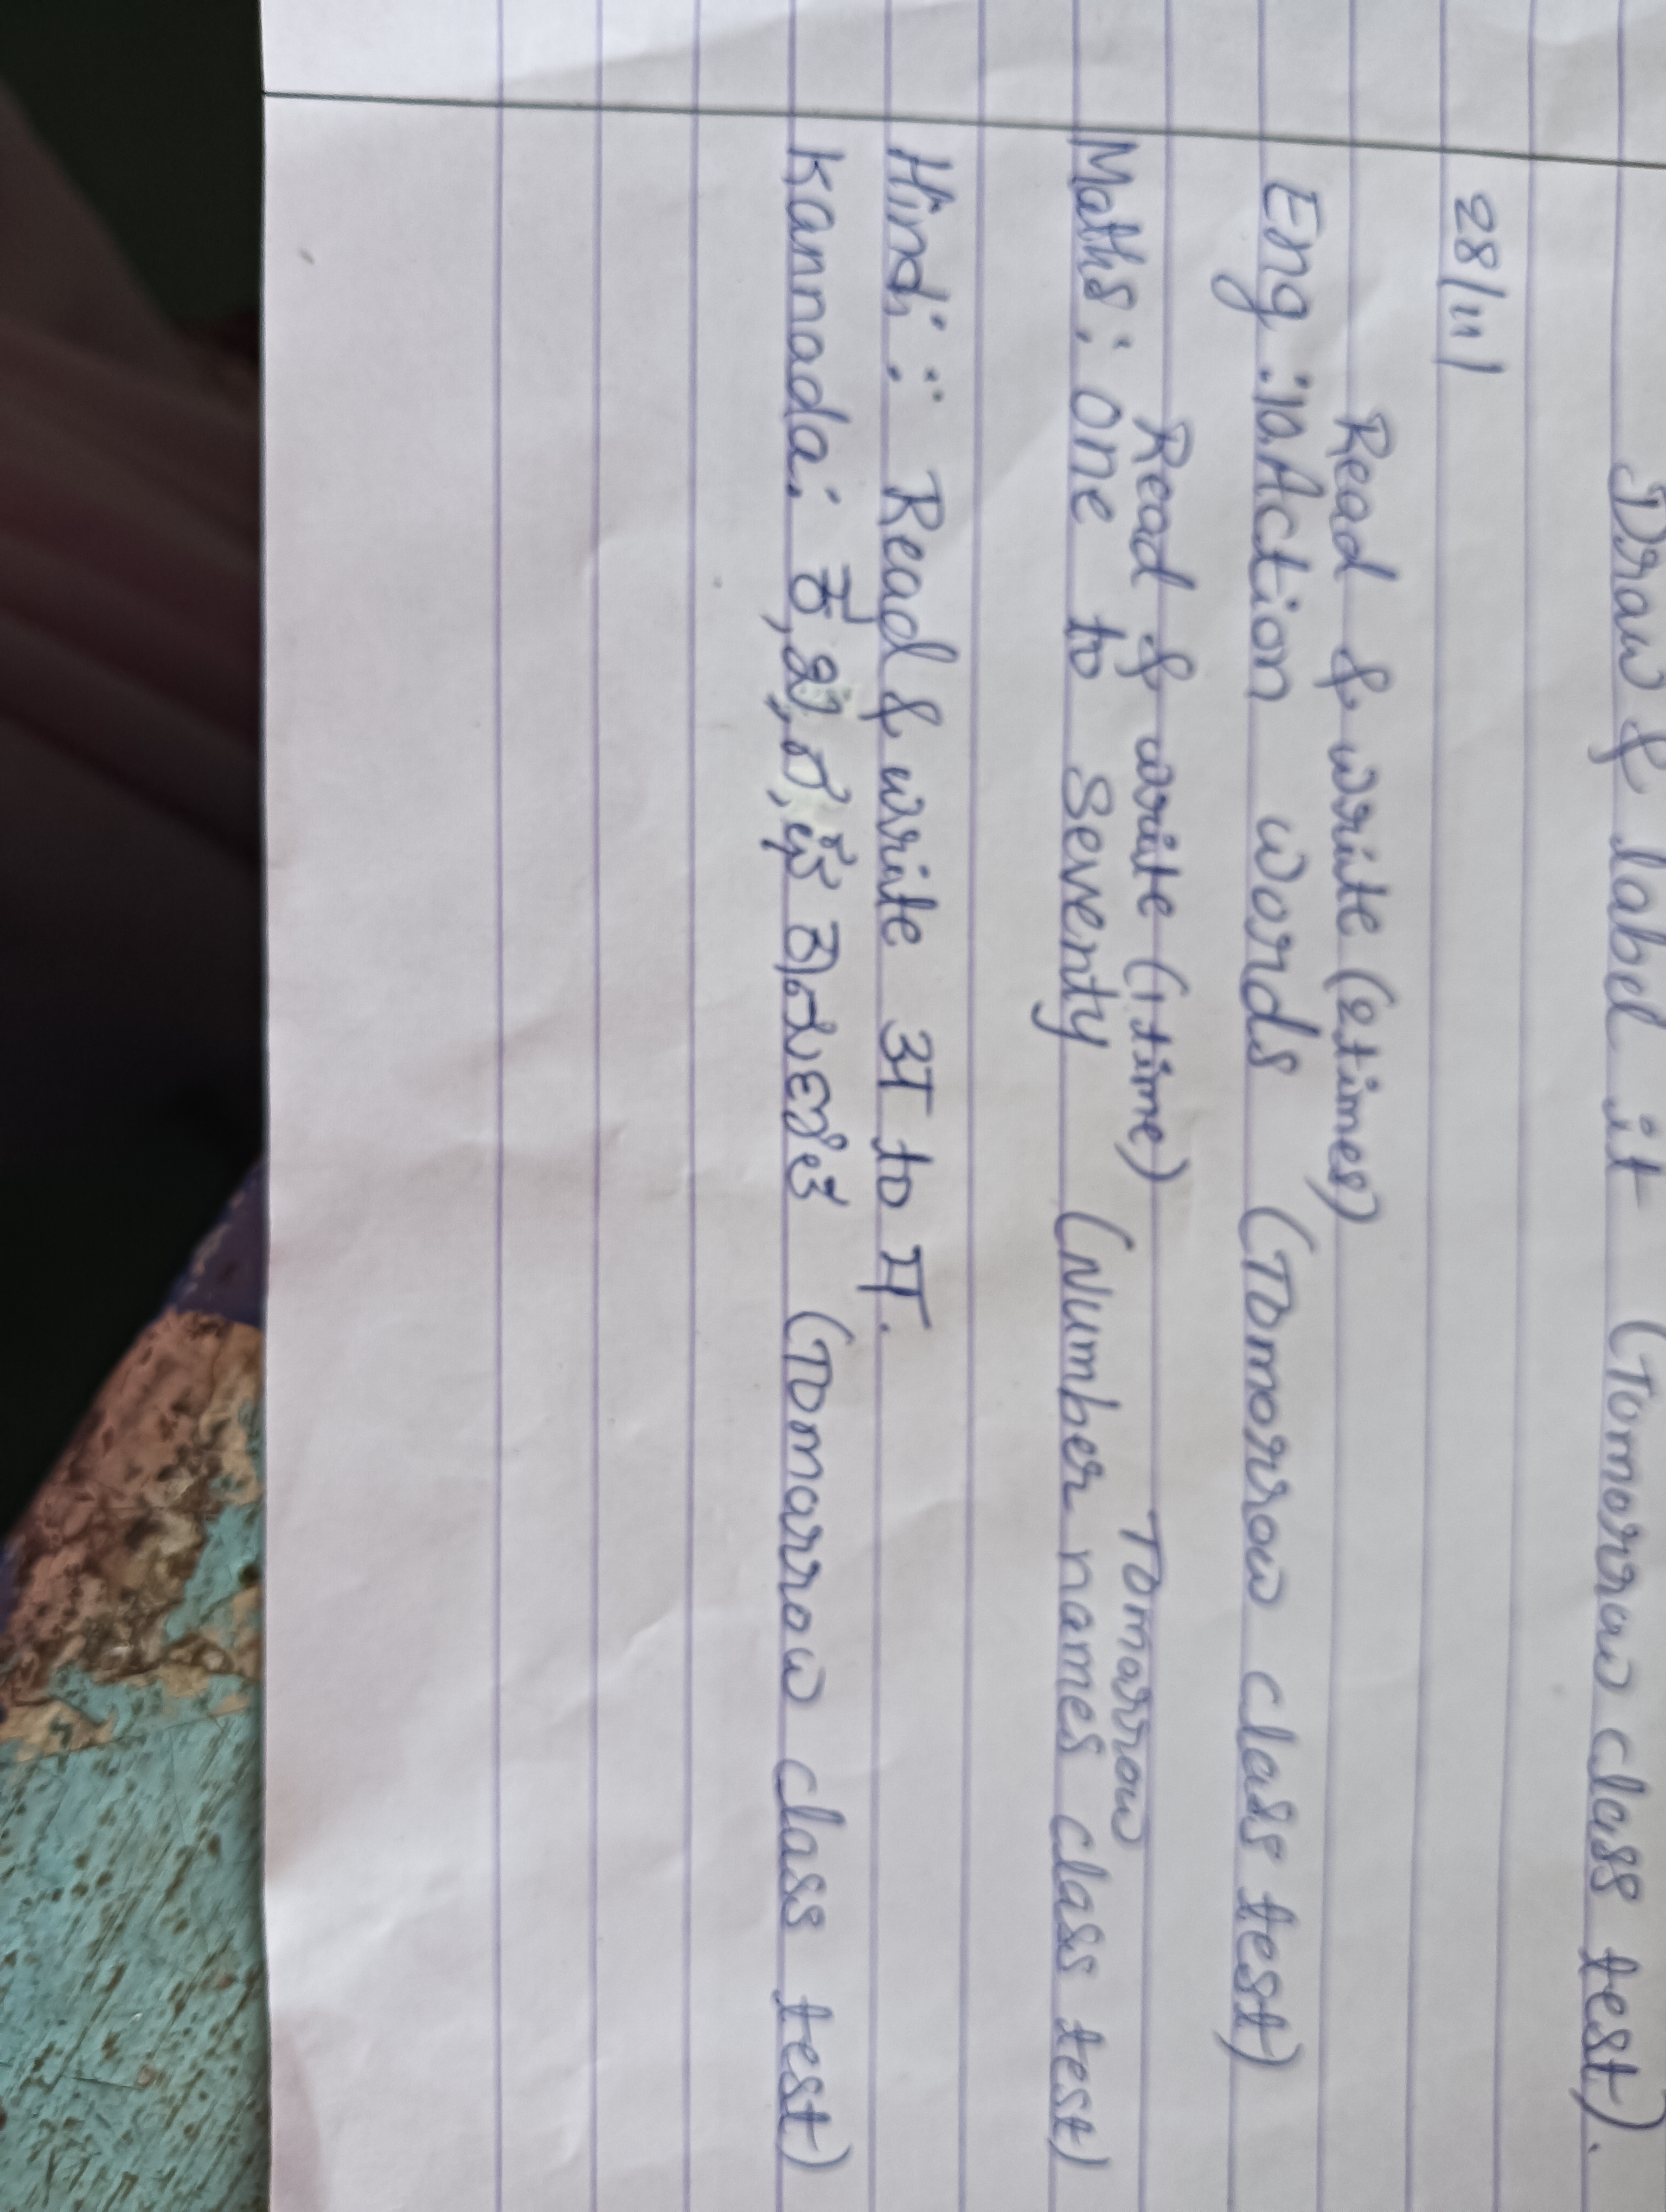 Draw & label it (Tomorrow class test).
28/11/
Read & write (2times)
Eng : 10 Action words (Tomorrow class test)
Read & write (1time) Tomarrow
Maths : one to Seventy (Number names class test)
Hindi : Read & write अ to म.
Kannada : ಕ, ಖ, ಗ, ಘ ಕಾಗುಣಿತ (Tomarrow class test)